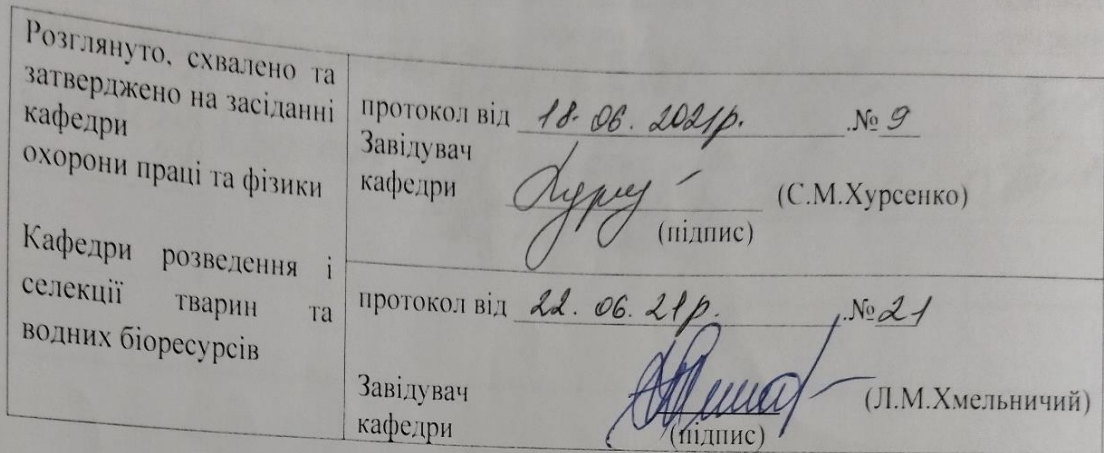 Розглянуто, схвалено та
затверджено на засіданні
кафедри
охорони праці та фізики
протокол від 18.06.2021р. .№ 9
Завідувач
кафедри (С.М.Хурсенко)
(підпис)
Кафедри розведення і
селекції тварин та
водних біоресурсів
протокол від 22.06.21р. .№ 21
Завідувач (Л.М.Хмельничий)
кафедри
(підпис)